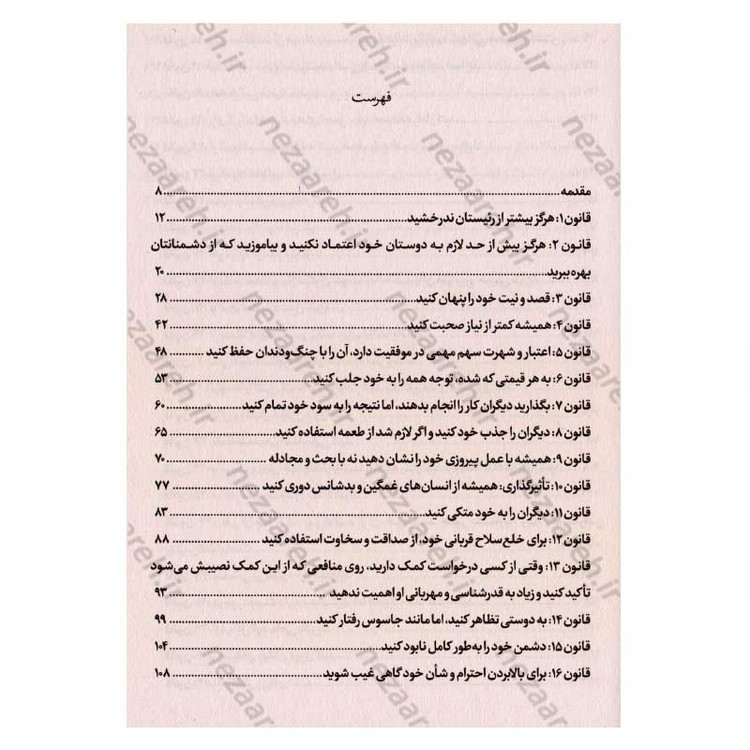 فهرست
مقدمه ........ ۸
قانون ۱: هرگز بیشتر از رئیستان ندرخشید ........ ۱۲
قانون ۲: هرگز بیش از حد لازم به دوستان خود اعتماد نکنید و بیاموزید که از دشمنانتان
بهره ببرید ........ ۲۰
قانون ۳: قصد و نیت خود را پنهان کنید ........ ۲۸
قانون ۴: همیشه کمتر از نیاز صحبت کنید ........ ۴۲
قانون ۵: اعتبار و شهرت سهم مهمی در موفقیت دارد، آن را با چنگ‌ودندان حفظ کنید ........ ۴۸
قانون ۶: به هر قیمتی که شده، توجه همه را به خود جلب کنید ........ ۵۳
قانون ۷: بگذارید دیگران کار را انجام بدهند، اما نتیجه را به سود خود تمام کنید ........ ۶۰
قانون ۸: دیگران را جذب خود کنید و اگر لازم شد از طعمه استفاده کنید ........ ۶۵
قانون ۹: همیشه با عمل پیروزی خود را نشان دهید نه با بحث و مجادله ........ ۷۰
قانون ۱۰: تأثیرگذاری: همیشه از انسان‌های غمگین و بدشانس دوری کنید ........ ۷۷
قانون ۱۱: دیگران را به خود متکی کنید ........ ۸۳
قانون ۱۲: برای خلع‌سلاح قربانی خود، از صداقت و سخاوت استفاده کنید ........ ۸۸
قانون ۱۳: وقتی از کسی درخواست کمک دارید، روی منافعی که از این کمک نصیبش می‌شود
تأکید کنید و زیاد به قدرشناسی و مهربانی او اهمیت ندهید ........ ۹۳
قانون ۱۴: به دوستی تظاهر کنید، اما مانند جاسوس رفتار کنید ........ ۹۹
قانون ۱۵: دشمن خود را به‌طور کامل نابود کنید ........ ۱۰۴
قانون ۱۶: برای بالابردن احترام و شأن خود گاهی غیب شوید ........ ۱۰۸
nezaareh.ir